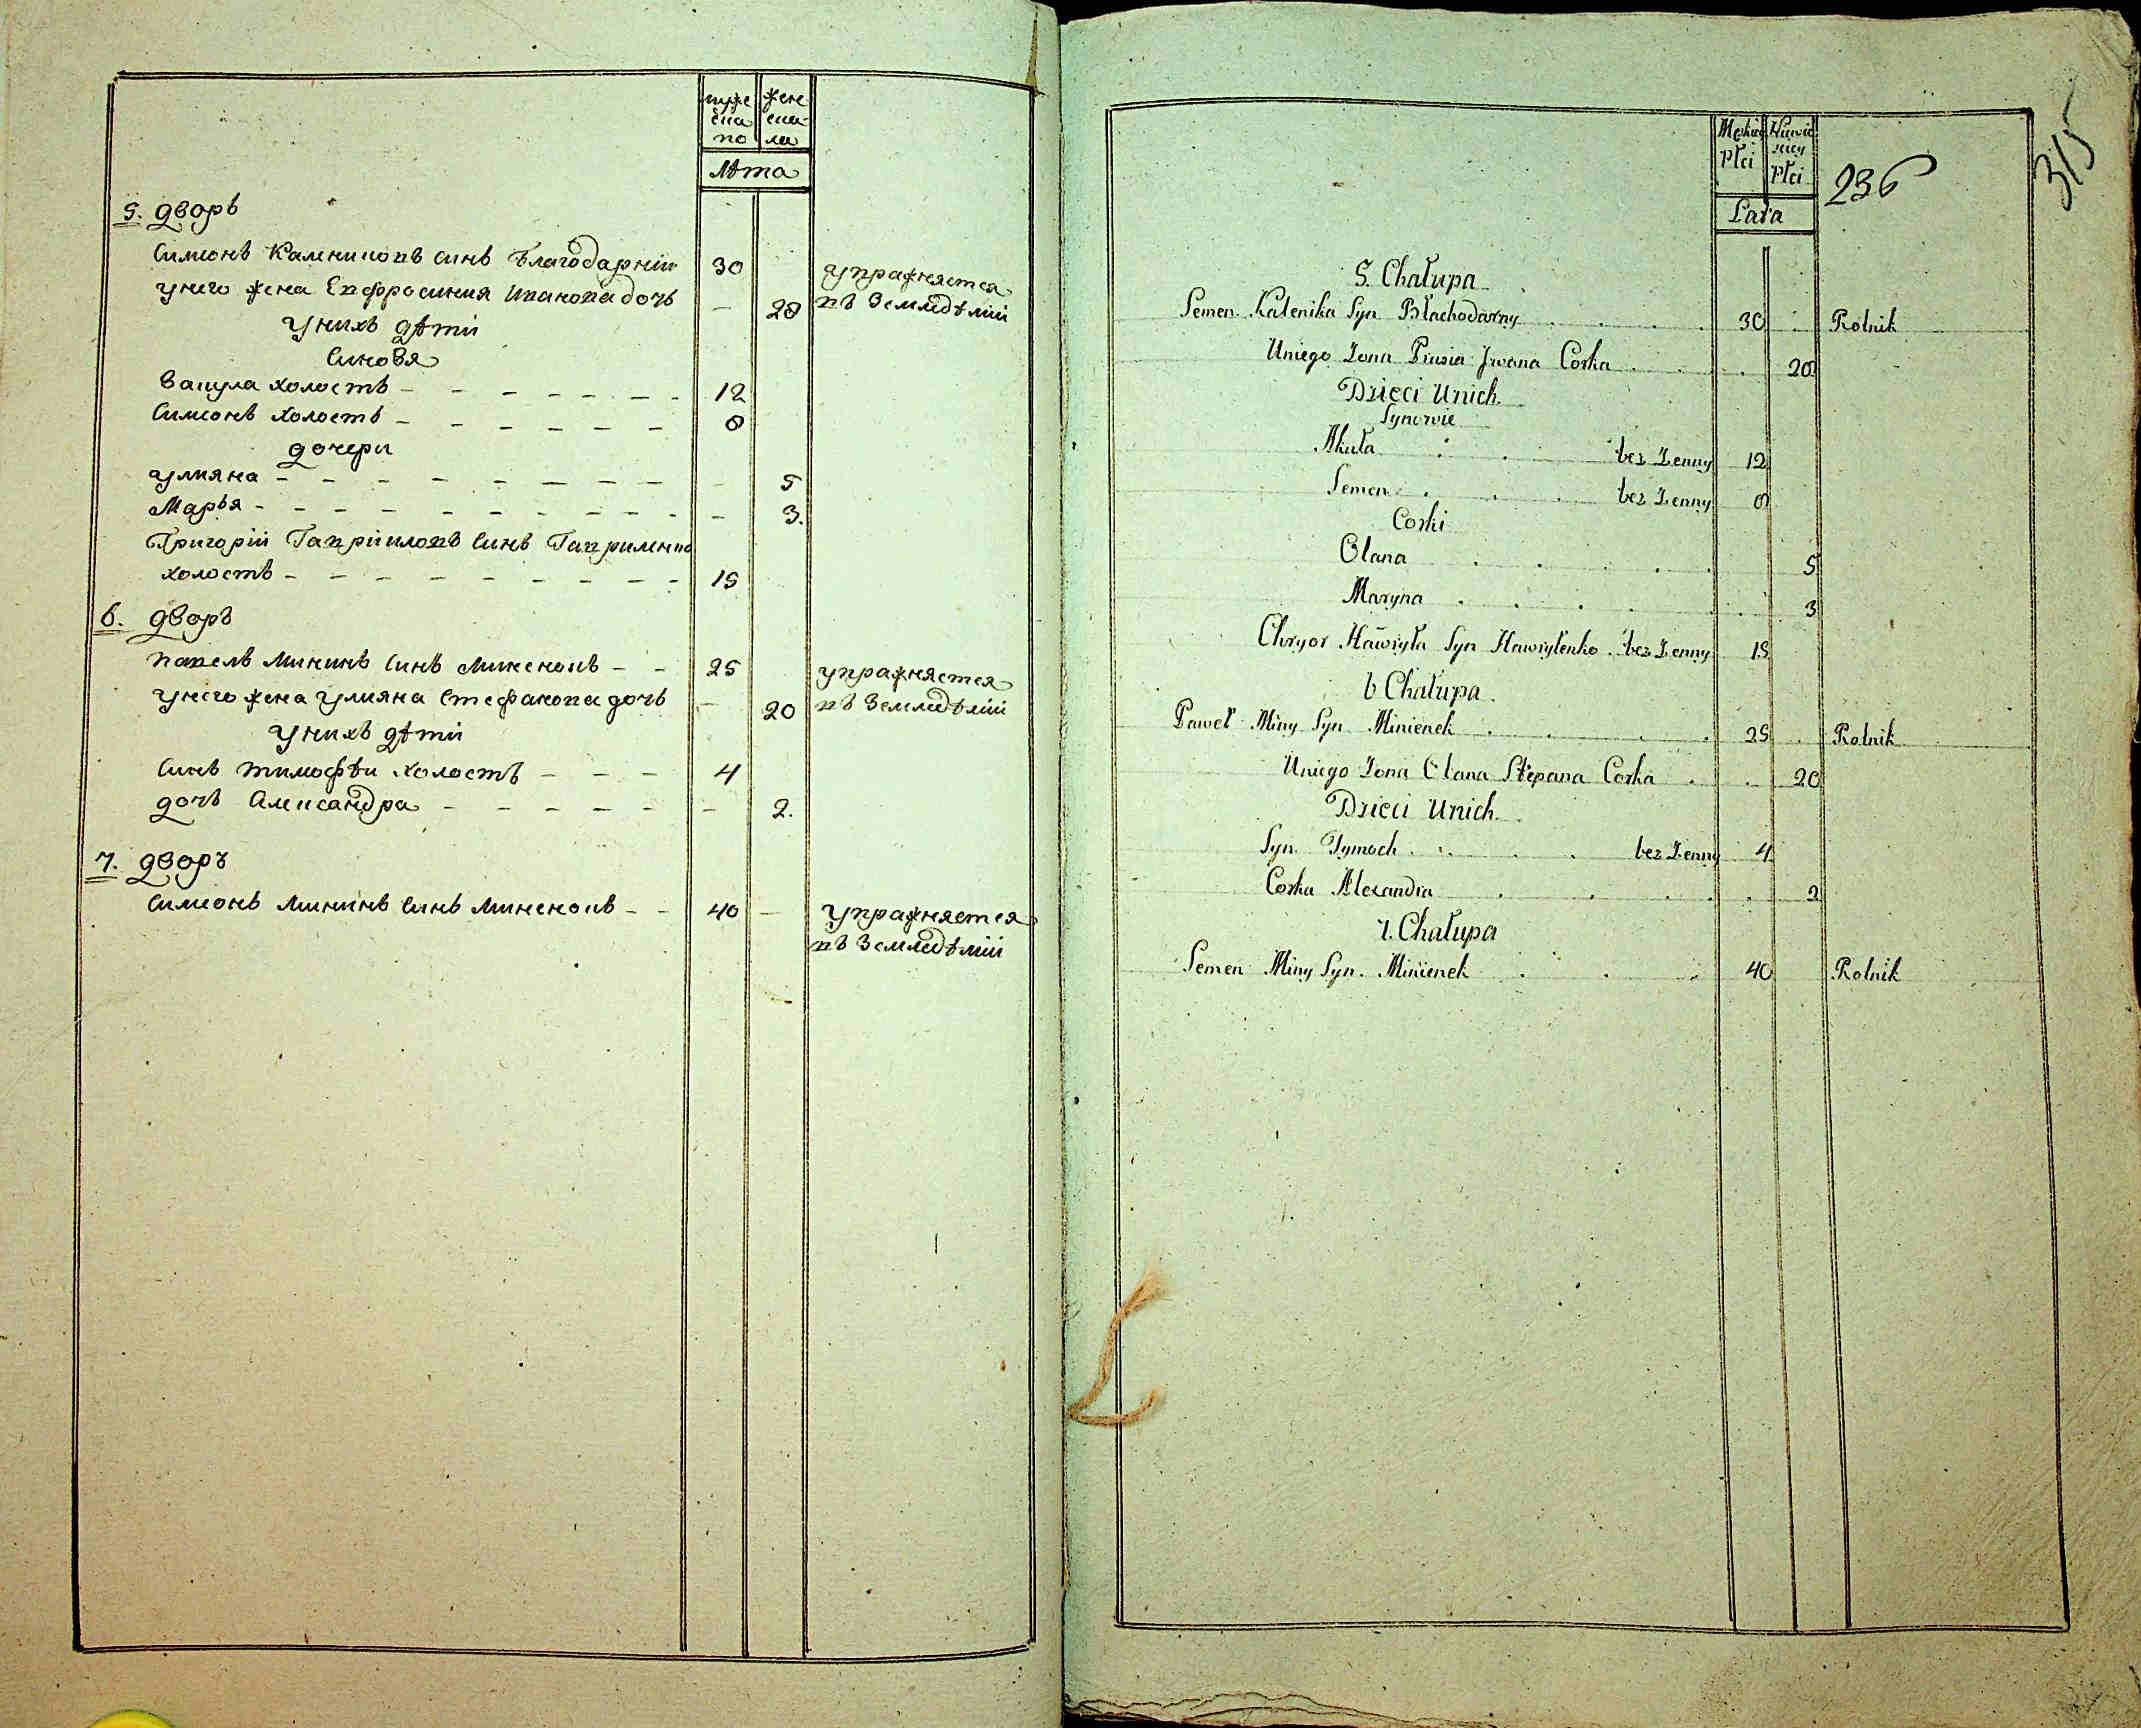 муже
ска
го
жене
ска
га
лѣта
5. дворъ
Симіонъ Калениковъ синъ Благодарній 30 упражняется
унего жена Евфросиния Иванова дочь — 28 въ Земледѣлій
Унихъ дѣти
Синовя
Вакула холостъ — — — — — — 12
Симіонъ холостъ — — — — — — 8
дочери
улияна — — — — — — — — — 5
Марья — — — — — — — — — — 3.
Григорій Гавріиловъ Синъ Гавриленко
холостъ — — — — — — — — — 15
6. дворъ
павелъ Мининъ Синъ Миненокъ — — 25 упражняется
унего жена улияна Стефанова дочь — 20 въ Земледѣлій
Унихъ дѣти
Синъ тимофѣи холостъ — — — 4
дочь Александра — — — — — — 2.
7. дворъ
Симіонъ Мининъ Синъ Миненокъ — — 40 — упражняется
въ Земледѣлій
315
236
Płci
Płci
Lata
5. Chałupa
Semen Kalenika Syn Błachodarny . . . . 30 . Rolnik
Uniego Zona Priusia Jwana Corka . . . 20
Dzieci Unich
Synowie
Akuła . . bez Zenny 12
Semen . . . bez Zenny 8
Corki
Olana . . . . . 5
Maryna . . . . . 3
Chryor Hawryła Syn Hawrylenko . bez Zenny 15
6 Chałupa
Paweł Miny Syn Minienek . . . . 25 . Rolnik
Uniego Zona Olana Stepana Corka . . 20
Dzieci Unich
Syn Tymoch . . . . bez Zenny 4
Corka Alexandra . . . . . 2
7. Chałupa
Semen Miny Syn. Minienek . . . 40 Rolnik